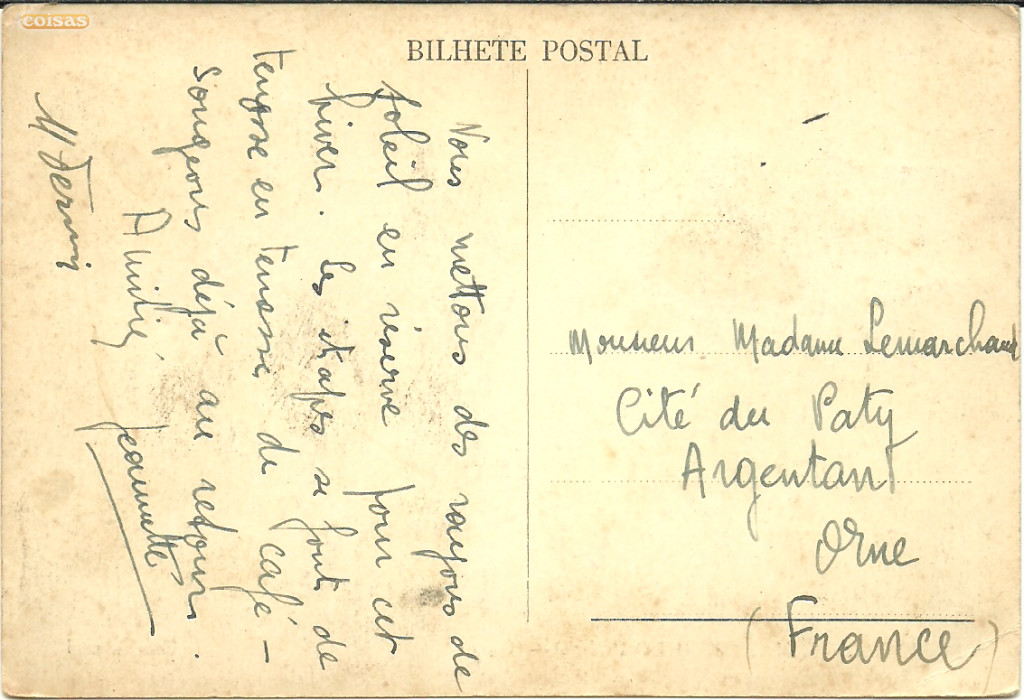 coisas
BILHETE POSTAL
Nous mettons des rayons de
soleil en réserve pour cet
hiver. Les étapes se font de
terrasse en terrasse de café -
songeons déjà au retour.
Amitié
Jeannette
Monsieur Madame Lemarchand
Cité du Paty
Argentan
Orne
(France)